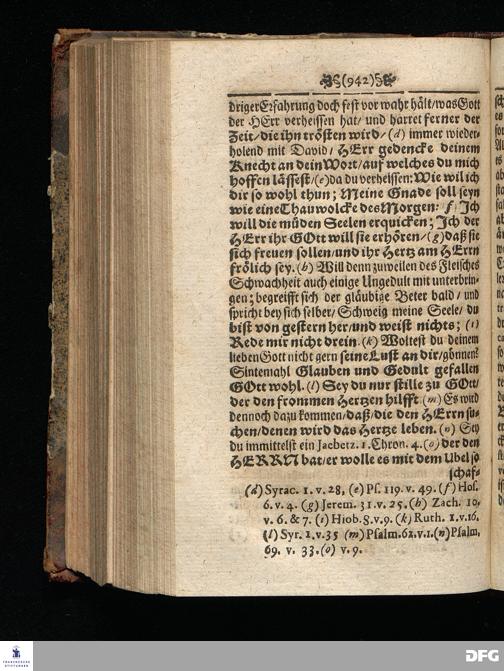 (942)
driger Erfahrung doch fest vor wahr hält/ was Gott
der HErr verheissen hat/ und harret ferner der
Zeit/ die ihn trösten wird/ (d) immer wieder-
holend mit David/ HErr gedencke deinem
Knecht an dein Wort/ auf welches du mich
hoffen lässest/ (e) da du verheissen: Wie wil ich
dir so wohl thun; Meine Gnade soll seyn
wie eine Thauwolcke des Morgen: f) Ich
will die müden Seelen erquicken; Ich der
HErr ihr GOtt will sie erhören/ (g) daß sie
sich freuen sollen/ und ihr Hertz am HErrn
frölich sey. (h) Will denn zuweilen des Fleisches
Schwachheit auch einige Ungedult mit unterbrin-
gen; begreifft sich der gläubige Beter bald/ und
spricht bey sich selber/ Schweig meine Seele/ du
bist von gestern her/ und weist nichts; (i)
Rede mir nicht drein. (k) Woltest du deinem
lieben Gott nicht gern seine Lust an dir/ gönnen?
Sintemahl Glauben und Gedult gefallen
GOtt wohl. (l) Sey du nur stille zu GOtt/
der den frommen Hertzen hilfft. (m) Es wird
dennoch dazu kommen/ daß/ die den HErrn su-
chen/ denen wird das Hertze leben. (n) Sey
du immittelst ein Jaebetz. 1. Chron. 4. (o) der den
HERRN bat/ er wolle es mit dem Übel so
schaf-
(d) Syrac. 1. v. 28, (e) Ps. 119. v. 49. (f) Hos.
6. v. 4. (g) Jerem. 31. v. 25. (h) Zach. 10.
v. 6. & 7. (i) Hiob. 8. v. 9. (k) Ruth. 1. v. 16.
(l) Syr. 1. v. 35 (m) Psalm. 62. v. 1. (n) Psalm,
69. v. 33. (o) v. 9.
FRANCKESCHE
STIFTUNGEN
DFG